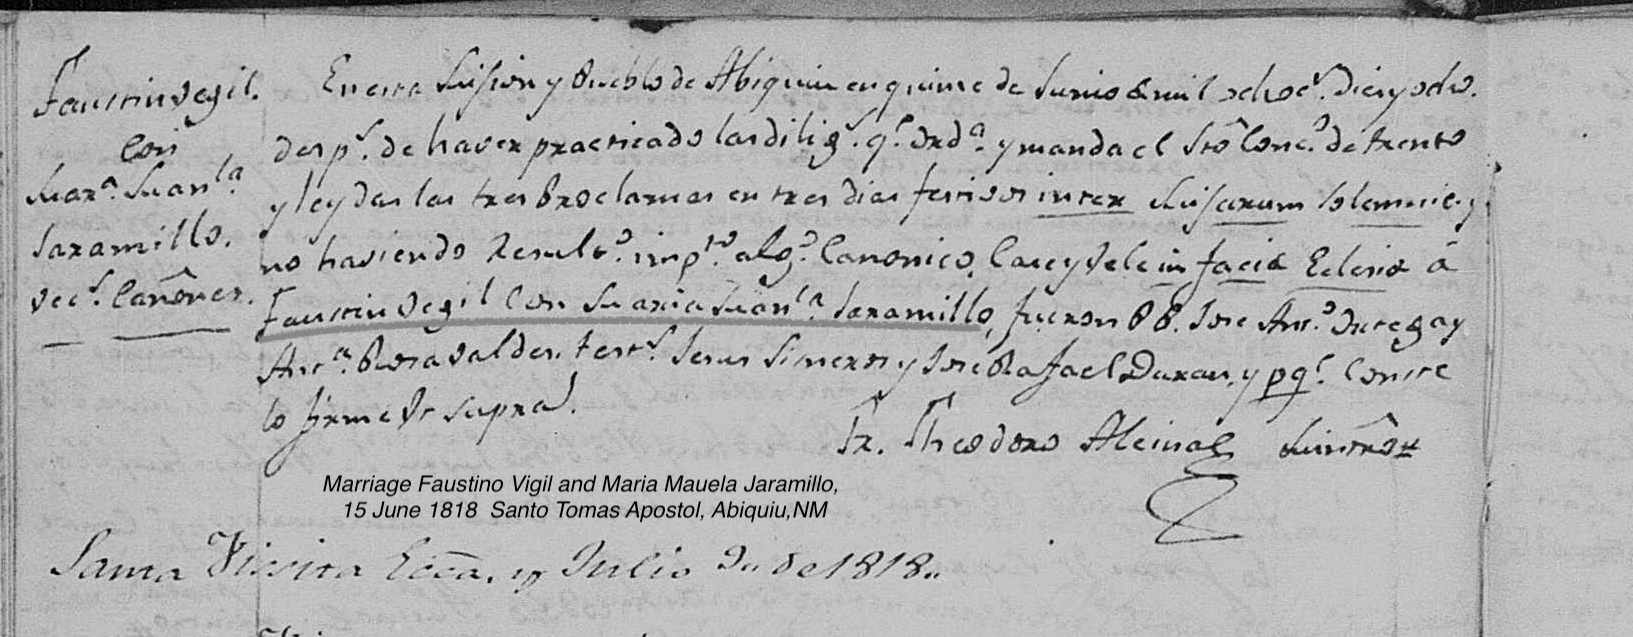 Faustin Vegil.
con
Mar.ª Man.la
Jaramillo.
vec.s Cañones.
En esta Mision y Pueblo de Abiquiu en quinse de Junio de mil ochoc.s dies y ocho.
desp.s de haver practicado las dilig.s q.e ord.a y manda el Sto Conc.o de trento
y leydas las tres Proclamas en tres dias festivos inter Misarum Solemnie y
no haviendo Result.o imp.to alg.o Canonico, Case y Vele in facie Eclesie á
Faustin Vegil Con Maria Man.la Jaramillo, fueron PP. Jose Ant.o Ortega y
Ant.a Rosa Valdes. test.s Jesus Simeron y Jose Rafael Duran, y pq.e Conste
lo firme Vt supra.
Fr. Theodoro Alcina Mintrô
Marriage Faustino Vigil and Maria Mauela Jaramillo,
15 June 1818 Santo Tomas Apostol, Abiquiu,NM
Santa Visita Ecca. y Julio de 1818..